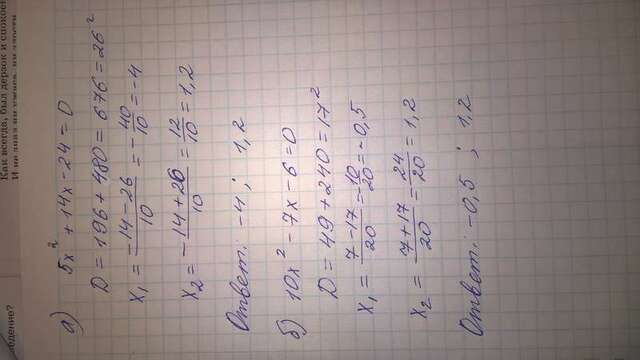 Как всегда, был дерзок и спокоен
бдение?
а) 5x² + 14x - 24 = 0
D = 196 + 480 = 676 = 26²
x₁ = (-14 - 26)/10 = -40/10 = -4
x₂ = (-14 + 26)/10 = 12/10 = 1,2
Ответ: -4; 1,2
б) 10x² - 7x - 6 = 0
D = 49 + 240 = 17²
x₁ = (7 - 17)/20 = -10/20 = -0,5
x₂ = (7 + 17)/20 = 24/20 = 1,2
Ответ: -0,5; 1,2